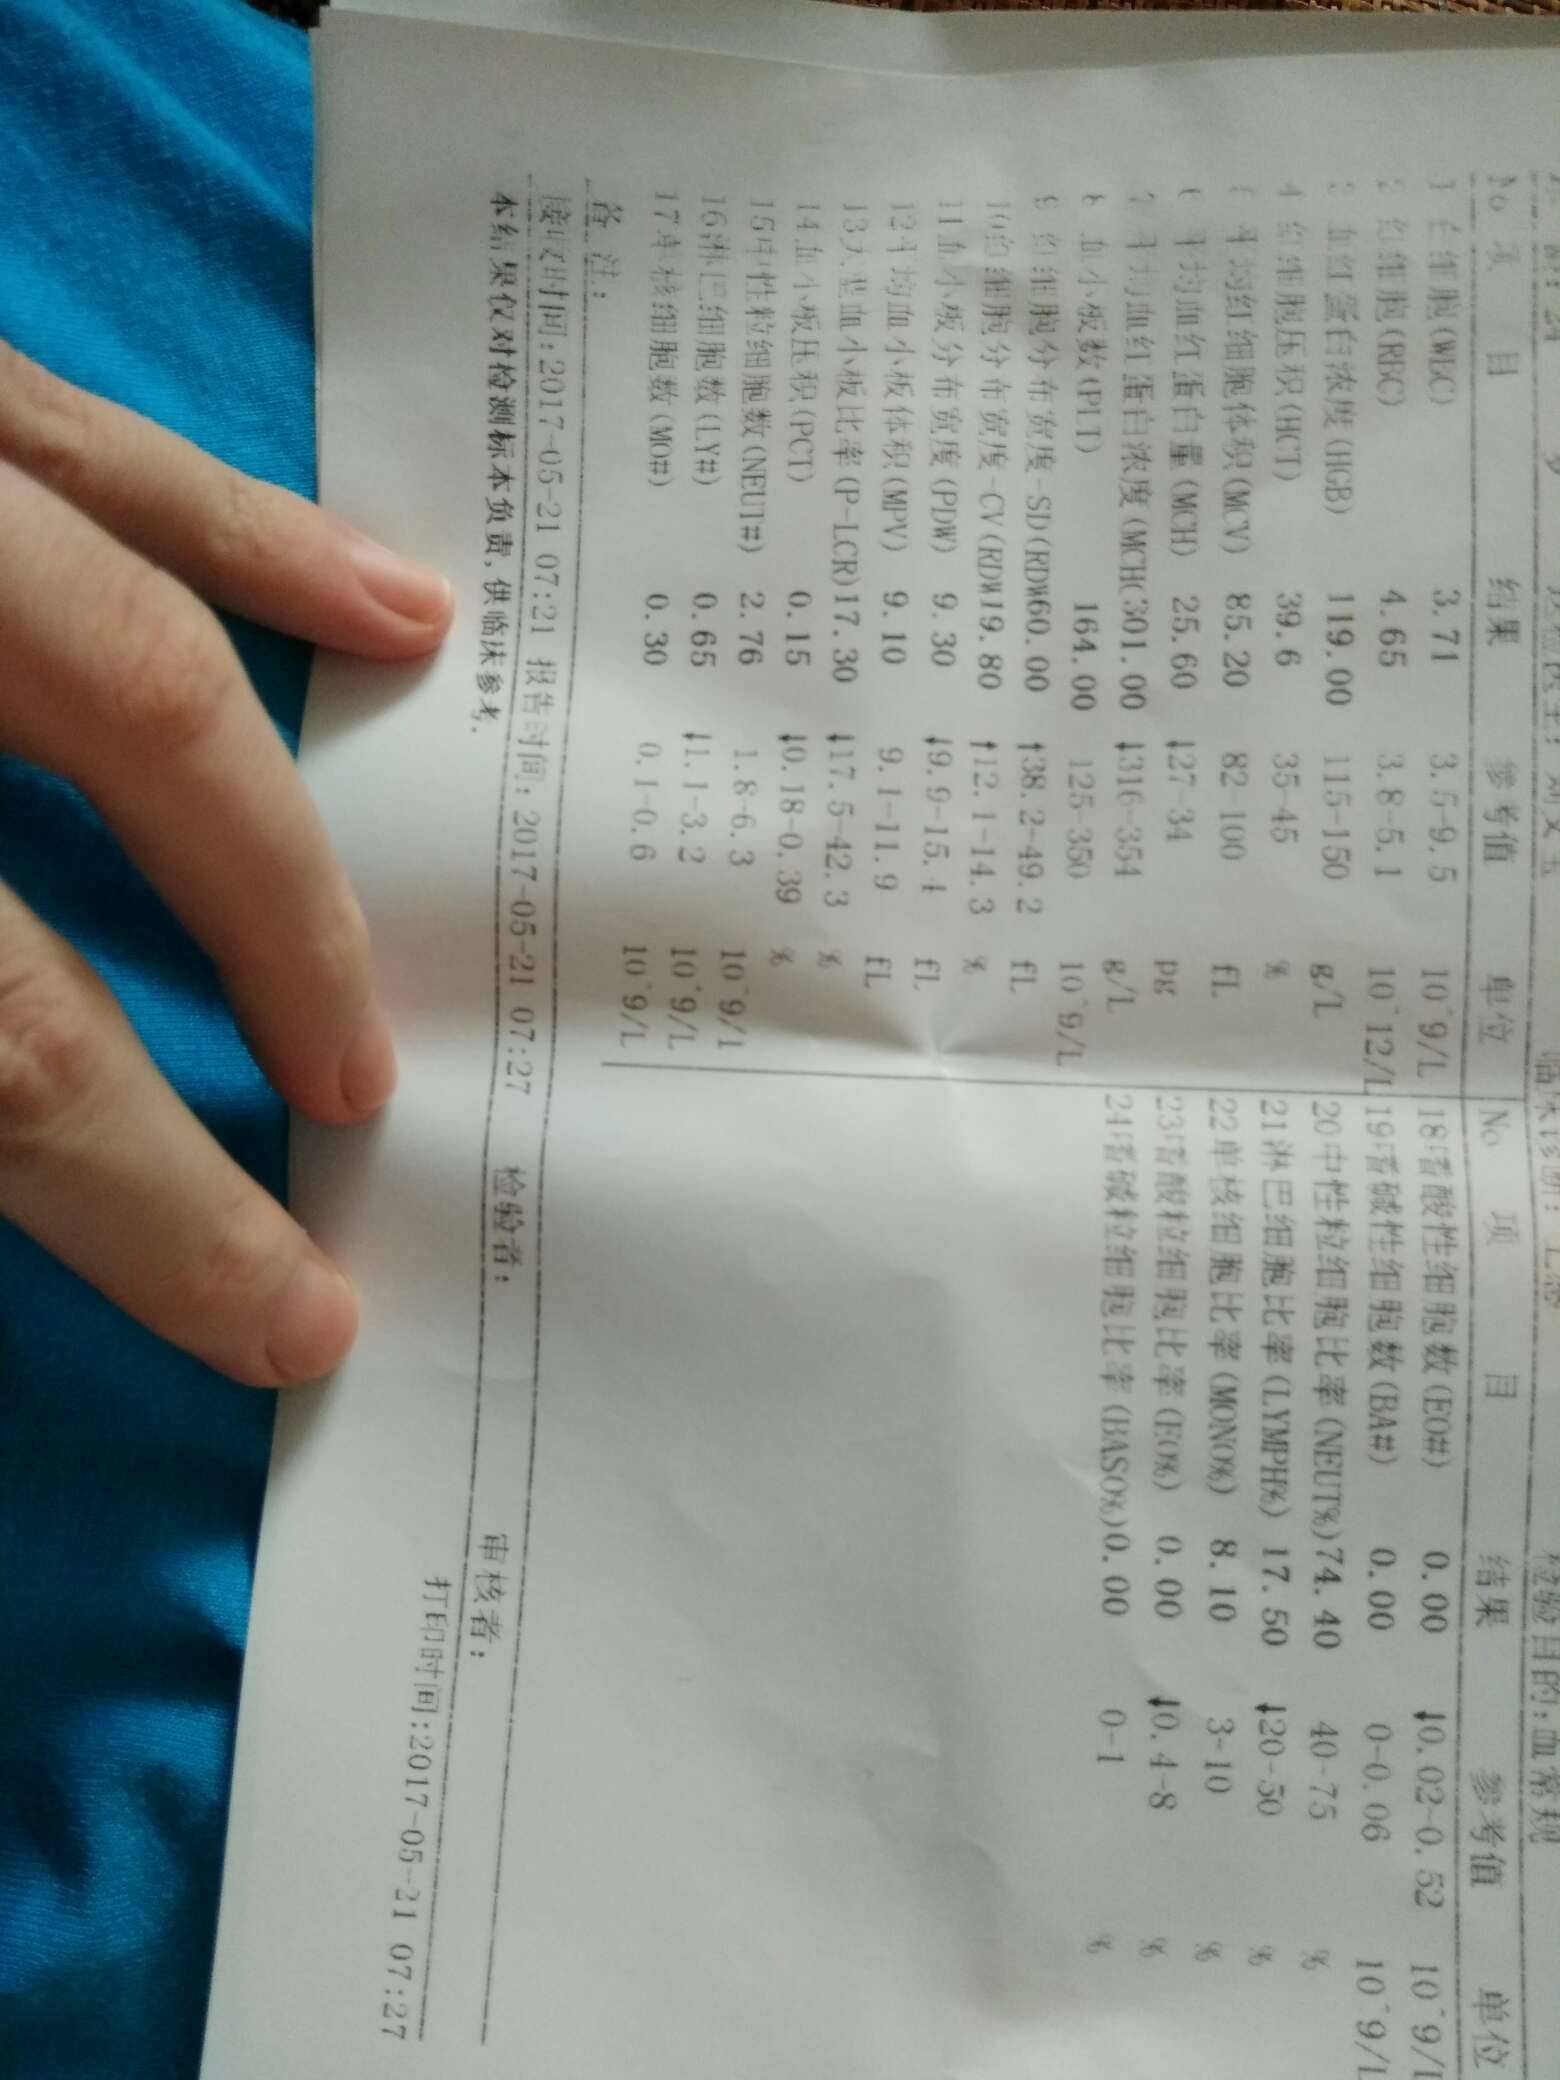 检验目的:血常规
No 项 目 结果 参考值 单位
1 白细胞(WBC) 3.71 3.5-9.5 10^9/L
2 红细胞(RBC) 4.65 3.8-5.1 10^12/L
3 血红蛋白浓度(HGB) 119.00 115-150 g/L
4 红细胞压积(HCT) 39.6 35-45 %
5 平均红细胞体积(MCV) 85.20 82-100 fL
6 平均血红蛋白量(MCH) 25.60 ↓27-34 pg
7 平均血红蛋白浓度(MCHC301.00 ↓316-354 g/L
8 血小板数(PLT) 164.00 125-350 10^9/L
9 红细胞分布宽度-SD(RDW60.00 ↑38.2-49.2 fL
10红细胞分布宽度-CV(RDW19.80 ↑12.1-14.3 %
11血小板分布宽度(PDW) 9.30 ↓9.9-15.4 fL
12平均血小板体积(MPV) 9.10 9.1-11.9 fL
13大型血小板比率(P-LCR)17.30 ↓17.5-42.3 %
14血小板压积(PCT) 0.15 ↓0.18-0.39 %
15中性粒细胞数(NEUT#) 2.76 1.8-6.3 10^9/L
16淋巴细胞数(LY#) 0.65 ↓1.1-3.2 10^9/L
17单核细胞数(MO#) 0.30 0.1-0.6 10^9/L
No 项 目 结果 参考值 单位
18嗜酸性细胞数(EO#) 0.00 ↓0.02-0.52 10^9/L
19嗜碱性细胞数(BA#) 0.00 0-0.06 10^9/L
20中性粒细胞比率(NEUT%)74.40 40-75 %
21淋巴细胞比率(LYMPH%) 17.50 ↓20-50 %
22单核细胞比率(MONO%) 8.10 3-10 %
23嗜酸粒细胞比率(EO%) 0.00 ↓0.4-8 %
24嗜碱粒细胞比率(BASO%)0.00 0-1 %
备 注:
接收时间:2017-05-21 07:21 报告时间:2017-05-21 07:27 检验者: 审核者:
本结果仅对检测标本负责,供临床参考. 打印时间:2017-05-21 07:27